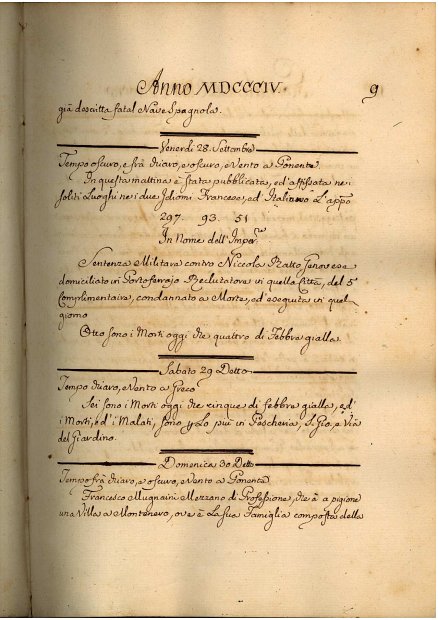 Anno MDCCCIV. 9
già descritta fatal Nave Spagnola.
Venerdì 28. Settembre
Tempo oscuro, e frà chiaro, e oscuro, e Vento a Ponente
In questa mattina è stata pubblicata, ed affissata nei
soliti Luoghi nei due Idiomi Francese, ed Italiano L'appo
297. 93. 51
In Nome dell'Imper.re
Sentenza Militare contro Niccola Ratto Genovese
domiciliato in Portoferrajo Reclutatore in quella Città, del 5°
Complimentaire, condannato a Morte, ed eseguita in quel
giorno
Otto sono i Morti oggi che quattro di Febbre gialla.
Sabato 29 Detto
Tempo chiaro, e Vento a Greco
Sei sono i Morti oggi che cinque di febbre gialla, ed
i Morti, ed i Malati, sono p lo più in Pescheria, S. Gio, e Via
del Giardino.
Domenica 30 Detto
Tempo frà chiaro, e oscuro, e Vento a Ponente
Francesco Mugnaini Mezzano di Professione, che à a pigione
una Villa a Montenero, ove è La sua Famiglia composta della